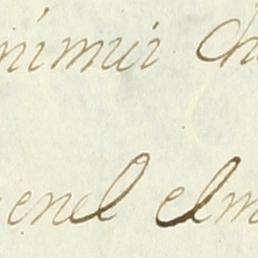 nimui ch
enel elm